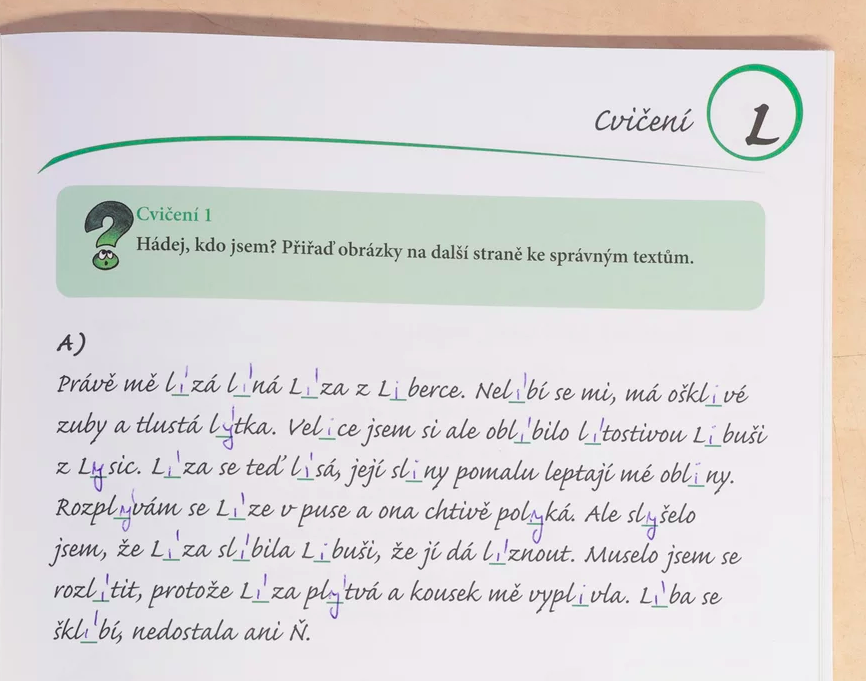 Cvičení L
Cvičení 1
Hádej, kdo jsem? Přiřaď obrázky na další straně ke správným textům.
A)
Právě mě lízá líná Líza z Liberce. Nelíbí se mi, má ošklivé
zuby a tlustá lýtka. Velice jsem si ale oblíbilo lítostivou Libuši
z Lysic. Líza se teď lísá, její sliny pomalu leptají mé obliny.
Rozplývám se Líze v puse a ona chtivě polyká. Ale slyšelo
jsem, že Líza slíbila Libuši, že jí dá líznout. Muselo jsem se
rozlítit, protože Líza plýtvá a kousek mě vyplivla. Líba se
šklíbí, nedostala ani Ň.